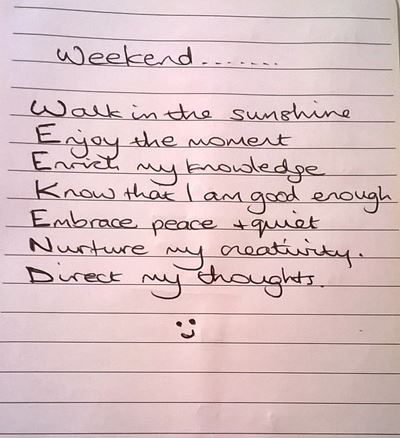 Weekend.......
Walk in the sunshine
Enjoy the moment
Enrich my knowledge
Know that I am good enough
Embrace peace + quiet
Nurture my creativity.
Direct my thoughts.